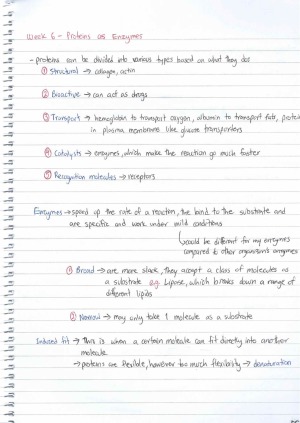 Week 6 - Proteins as Enzymes
- proteins can be divided into various types based on what they do:
① Structural → collagen, actin
② Bioactive → can act as drugs
③ Transport → hemoglobin to transport oxygen, albumin to transport fats, proteins
in plasma membrane like glucose transporters
④ Catalysts → enzymes, which make the reaction go much faster
⑤ Recognition molecules → receptors
Enzymes → speed up the rate of a reaction, the bind to the substrate and
are specific and work under mild conditions
would be different for my enzymes
compared to other organism's enzymes
① Broad → are more slack, they accept a class of molecules as
a substrate e.g. Lipase, which breaks down a range of
different lipids
② Narrow → may only take 1 molecule as a substrate
Induced fit → This is when a certain molecule can fit directly into another
molecule
→ proteins are flexible, however too much flexibility → denaturation